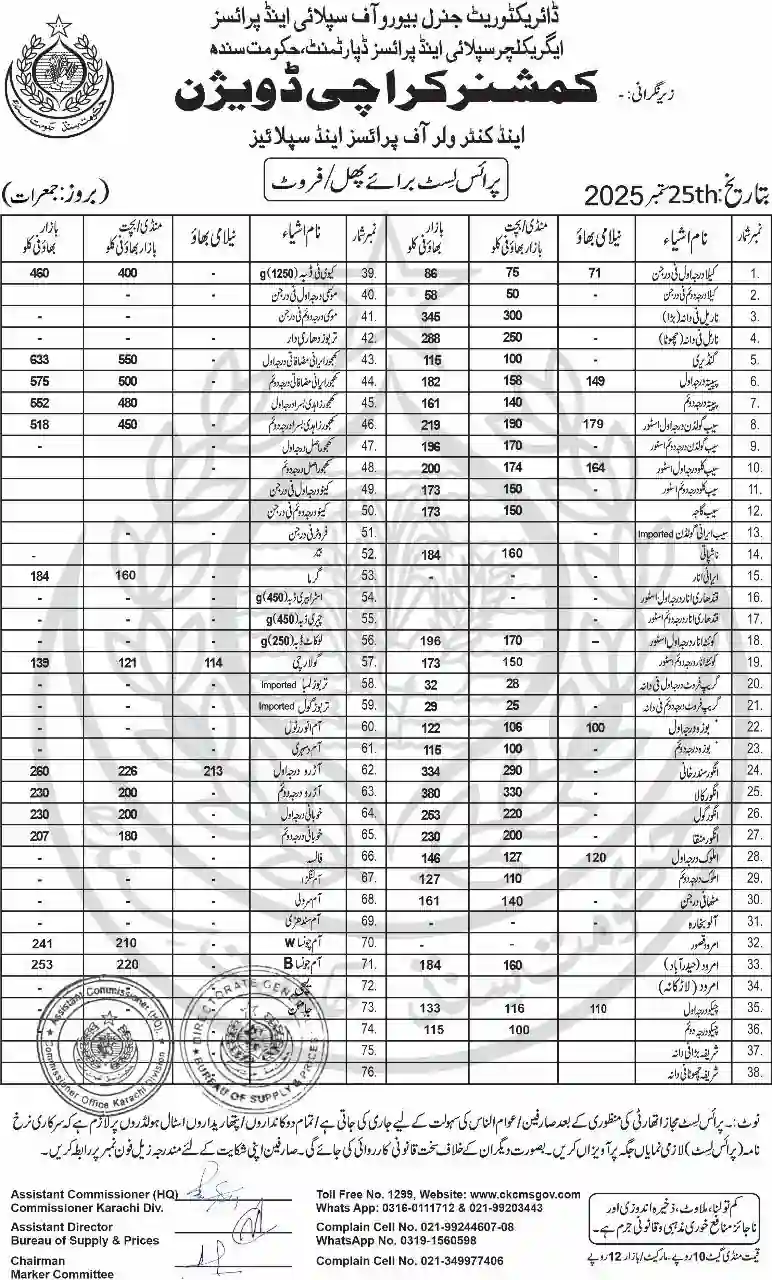 ڈائریکٹوریٹ جنرل بیورو آف سپلائی اینڈ پرائسز
ایگریکلچر سپلائی اینڈ پرائسز ڈپارٹمنٹ، حکومت سندھ
زیر نگرانی: - کمشنر کراچی ڈویژن
اینڈ کنٹرولر آف پرائسز اینڈ سپلائیز
پرائس لسٹ برائے پھل/فروٹ
بتاریخ: 25th ستمبر 2025
(بروز: جمعرات)
نمبر شمار نام اشیاء نیلامی بھاؤ منڈی/بچت بازار بھاؤ فی کلو بازار بھاؤ فی کلو
1. کیلا درجہ اول فی درجن 71 75 86
2. کیلا درجہ دوئم فی درجن - 50 58
3. ناریل فی دانہ (بڑا) - 300 345
4. ناریل فی دانہ (چھوٹا) - 250 288
5. گنڈیری - 100 115
6. پپیتہ درجہ اول 149 158 182
7. پپیتہ درجہ دوئم - 140 161
8. سیب گولڈن درجہ اول اسٹور 179 190 219
9. سیب گولڈن درجہ دوئم اسٹور - 170 196
10. سیب کلو درجہ اول اسٹور 164 174 200
11. سیب کلو درجہ دوئم اسٹور - 150 173
12. سیب گاجہ 150 173
13. سیب ایرانی گولڈن Imported -
14. ناشپاتی 160 184
15. ایرانی انار - - -
16. قندھاری انار درجہ اول اسٹور -
17. قندھاری انار درجہ دوئم اسٹور -
18. کوئٹہ انار درجہ اول اسٹور – 170 196
19. کوئٹہ انار درجہ دوئم اسٹور - 150 173
20. گریپ فروٹ درجہ اول فی دانہ - 28 32
21. گریپ فروٹ درجہ دوئم فی دانہ - 25 29
22. درجہ اول 100 106 122
23. درجہ دوئم - 100 115
24. انگور سندرخانی - 290 334
25. انگور کالا - 330 380
26. انگور گول - 220 253
27. انگور منقا - 200 230
28. املوک درجہ اول 120 127 146
29. املوک درجہ دوئم - 110 127
30. مٹھا فی درجن - 140 161
31. آلو بخارہ - - -
32. امرود قصور - - -
33. امرود (حیدرآباد) - 160 184
34. امرود (لاڑکانہ)
35. چیکو درجہ اول 110 116 133
36. چیکو درجہ دوئم 100 115
37. شریفہ بڑا فی دانہ
38. شریفہ چھوٹا فی دانہ
نمبر شمار نام اشیاء نیلامی بھاؤ منڈی/بچت بازار بھاؤ فی کلو بازار بھاؤ فی کلو
39. کیوی فی ڈبہ (1250)g - 400 460
40. موسمی درجہ اول فی درجن - - -
41. موسمی درجہ دوئم فی درجن - - -
42. تربوز دھاری دار - - -
43. کھجور ایرانی مضافاتی درجہ اول - 550 633
44. کھجور ایرانی مضافاتی درجہ دوئم - 500 575
45. کھجور زاہدی بسرا درجہ اول - 480 552
46. کھجور زاہدی بسرا درجہ دوئم - 450 518
47. کھجور اصل درجہ اول - - -
48. کھجور اصل درجہ دوئم - - -
49. کینو درجہ اول فی درجن
50. کینو درجہ دوئم فی درجن
51. فروٹر فی درجن - -
52. -
53. گرما - 160 184
54. اسٹرابیری ڈبہ (450)g
55. چیری ڈبہ (450)g
56. لوکاٹ ڈبہ (250)g
57. گولارچی 114 121 139
58. تربوز لمبا Imported - - -
59. تربوز گول Imported - - -
60. آم انور رٹول - - -
61. آم دسہری - - -
62. آڑو درجہ اول 213 226 260
63. آڑو درجہ دوئم - 200 230
64. خوبانی درجہ اول - 200 230
65. خوبانی درجہ دوئم - 180 207
66. فالسہ - - -
67. آم لنگڑا - - -
68. آم سرولی - - -
69. آم سندھڑی - - -
70. آم چونسا W - 210 241
71. آم چونسا B - 220 253
72.
73. جامن
74.
75.
76.
Assistant Commissioner (HQ).
Commissioner Office Karachi Division
DIRECTORATE GENERAL
BUREAU OF SUPPLY & PRICES
نوٹ:۔ پرائس لسٹ مجاز اتھارٹی کی منظوری کے بعد صارفین/عوام الناس کی سہولت کے لیے جاری کی جاتی ہے/تمام دوکانداروں/پتھاریداروں اسٹال ہولڈروں پر لازم ہے کہ سرکاری نرخ
نامہ (پرائس لسٹ) لازمی نمایاں جگہ پر آویزاں کریں۔ بصورت دیگر ان کے خلاف سخت قانونی کارروائی کی جائے گی۔ صارفین اپنی شکایت کے لئے مندرجہ ذیل فون نمبر پر رابطہ کریں۔
Assistant Commissioner (HQ)
Commissioner Karachi Div.
Assistant Director
Bureau of Supply & Prices
Chairman
Marker Committee
Toll Free No. 1299, Website: www.ckcmsgov.com
Whats App: 0316-0111712 & 021-99203443
Complain Cell No. 021-99244607-08
WhatsApp No. 0319-1560598
Complain Cell No. 021-349977406
کم تولنا، ملاوٹ، ذخیرہ اندوزی اور
ناجائز منافع خوری مذہبی و قانونی جرم ہے۔
قیمت منڈی گیٹ 10 روپے۔ مارکیٹ/بازار 12 روپے